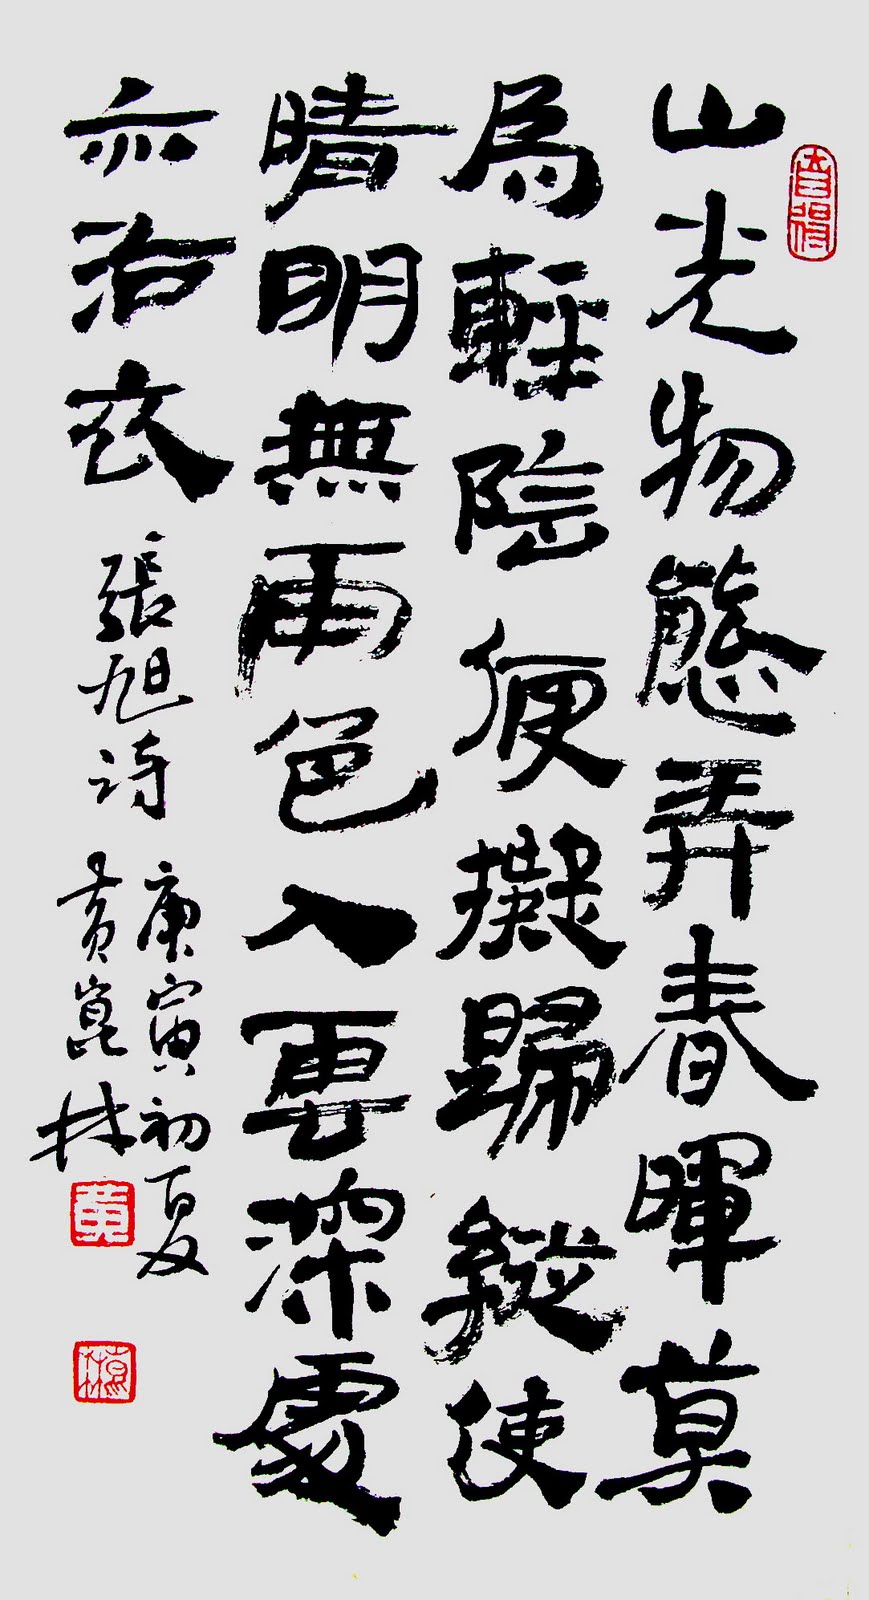 山光物態弄春暉莫
為輕陰便擬歸縱使
晴明無雨色入雲深處
亦沾衣
張旭詩
庚寅初夏
黃崑林
黃